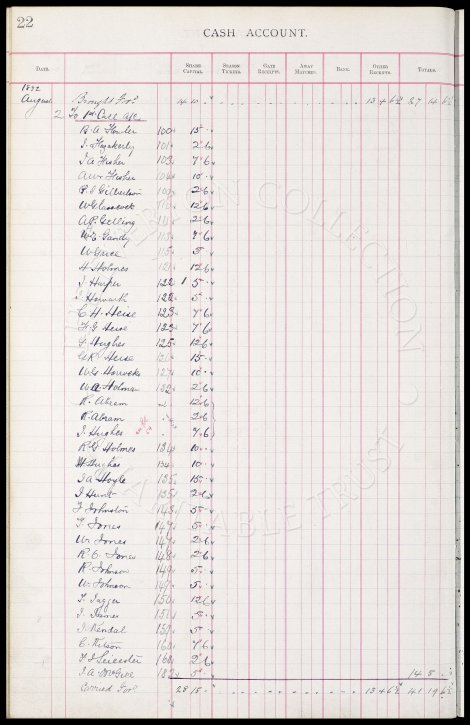 22
CASH ACCOUNT.
DATE. SHARE CAPITAL. SEASON TICKETS. GATE RECEIPTS. AWAY MATCHES. BANK. OTHER RECEIPTS. TOTALS.
1892
August Brought For^d 14 10 13 4 6½ 27 14 6½
2 To 1st Call a/c
B. A. Fowler 100 15
J. Hazakerly 101 2 6
J A Fisher 103 7 6
A W Fisher 104 10
R. J Gilbertson 2 6
W Glasscock 12 6
A R Gelling 2 6
W E Gandy 7 6
W Grice 5
H Holmes 12 6
J Harper 122 1 5
J Howarth 122 5
C. H. Heise 123 7 6
F G Heise 123 7 6
J. Hughes 125 12 6
G R Heise 126 15
127 10
W Holman 132 2 6
R. Abram 12 6
R. Abram 2 6
J. Hughes 7 6
R G Holmes 134 10
W Hughes 134 10
J A Hoyle 135 15
J Hunt 135 2 6
J Johnston 143 5
J. Jones 147 5
W. Jones 147 2 6
R. E. Jones 148 2 6
R Johnson 149 5
W. Johnson 149 5
J. Jagger 150 12 6
J. James 151 5
J. Kendal 159 5
C. Kitson 160 7 6
J J Leicester 168 2 6
J. A. McGive 182 5 14 5
Carried For^d 28 15 13 4 6½ 41 19 6½